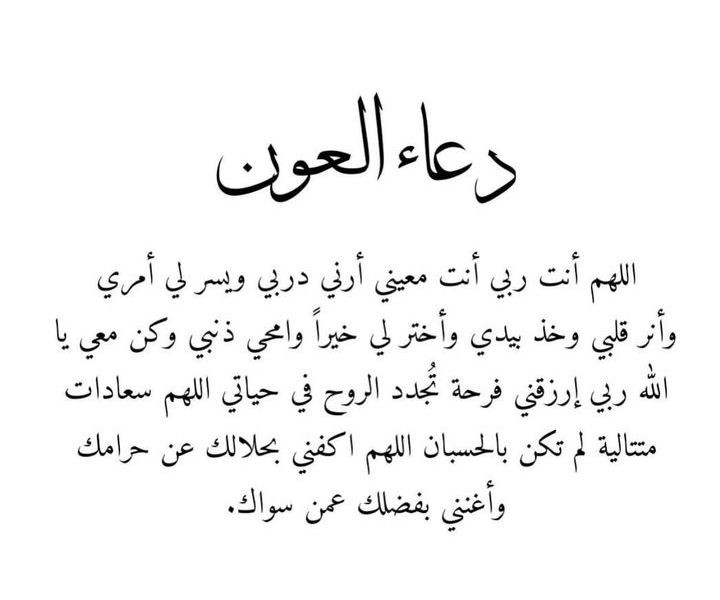 دعاء العون
اللهم أنت ربي أنت معيني أرني دربي ويسر لي أمري
وأنر قلبي وخذ بيدي وأختر لي خيراً وامحي ذنبي وكن معي يا
الله ربي إرزقني فرحة تُجدد الروح في حياتي اللهم سعادات
متتالية لم تكن بالحسبان اللهم اكفني بحلالك عن حرامك
وأغنني بفضلك عمن سواك.